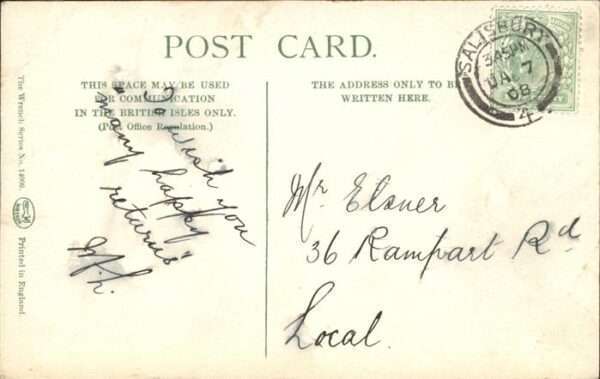 POST CARD.
THIS SPACE MAY BE USED
FOR COMMUNICATION
IN THE BRITISH ISLES ONLY.
(Post Office Regulation.)
THE ADDRESS ONLY TO BE
WRITTEN HERE.
SALISBURY
JA 7
08
To wish you
"many happy
returns"
Mr Elsner
36 Rampart Rd
Local.
The Wrench Series No. 14000.
Printed in England.